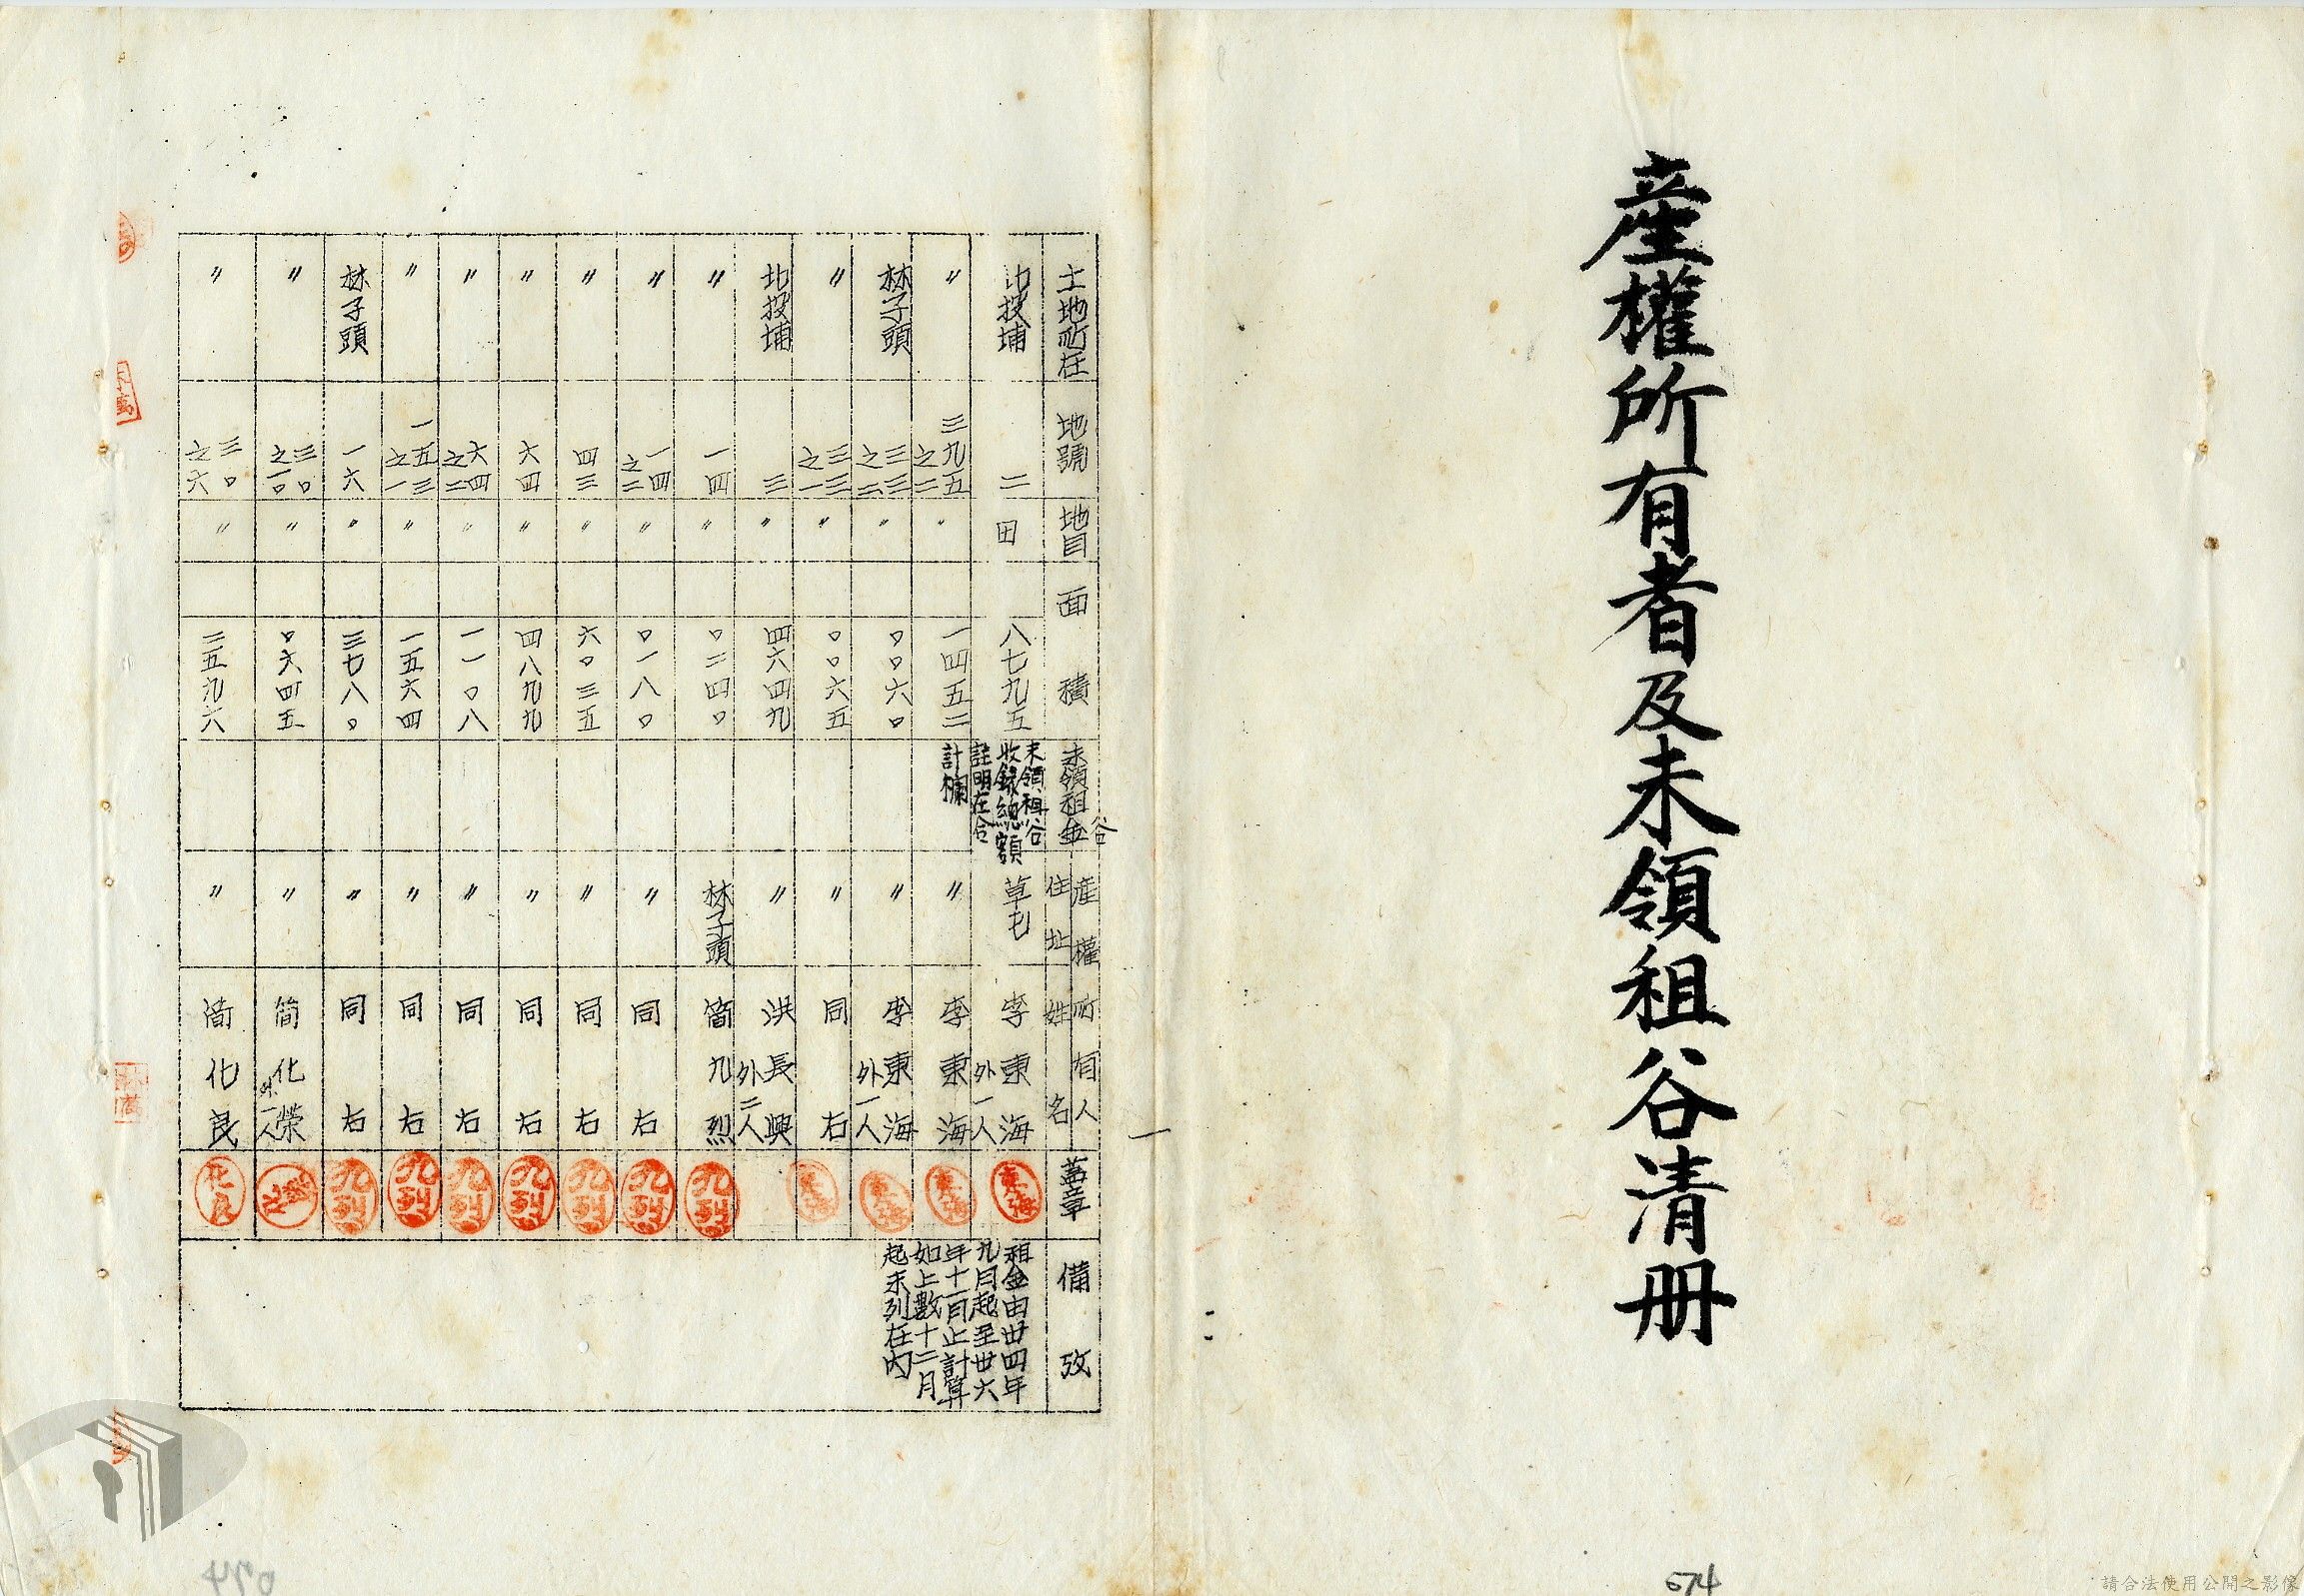 産權所有者及未領租谷清册
土地所在 地號 地目 面積 未領租金谷 産權所有人 住址 姓名 蓋章 備攷
北投埔 二 田 八七九五 未領租谷收錄總額註明在合計欄 草屯 李東海外一人 東海 租金由卅四年九月起至卅六年十一月止計算如上數十二月起未列在內
〃 三九五之二 〃 一四五二 〃 李東海 東海
林子頭 三三之三 〃 〇〇六〇 〃 李東海外一人 東海
〃 三三之一 〃 〇〇六五 〃 同右 東海
北投埔 三 〃 四六四九 〃 洪長興外二人
〃 一四 〃 〇二四〇 林子頭 簡九烈 九烈
〃 一四之二 〃 〇一八〇 〃 同右 九烈
〃 四三 〃 六〇三五 〃 同右 九烈
〃 六四 〃 四八九九 〃 同右 九烈
〃 六四之二 〃 一一〇八 〃 同右 九烈
〃 一五三之一 〃 一五六四 〃 同右 九烈
林子頭 一六 〃 三七八〇 〃 同右 九烈
〃 三〇之一〇 〃 〇六四五 〃 簡化榮外一人
〃 三〇之六 〃 三五九六 〃 簡化良 化良
一
674
請合法使用公開之影像